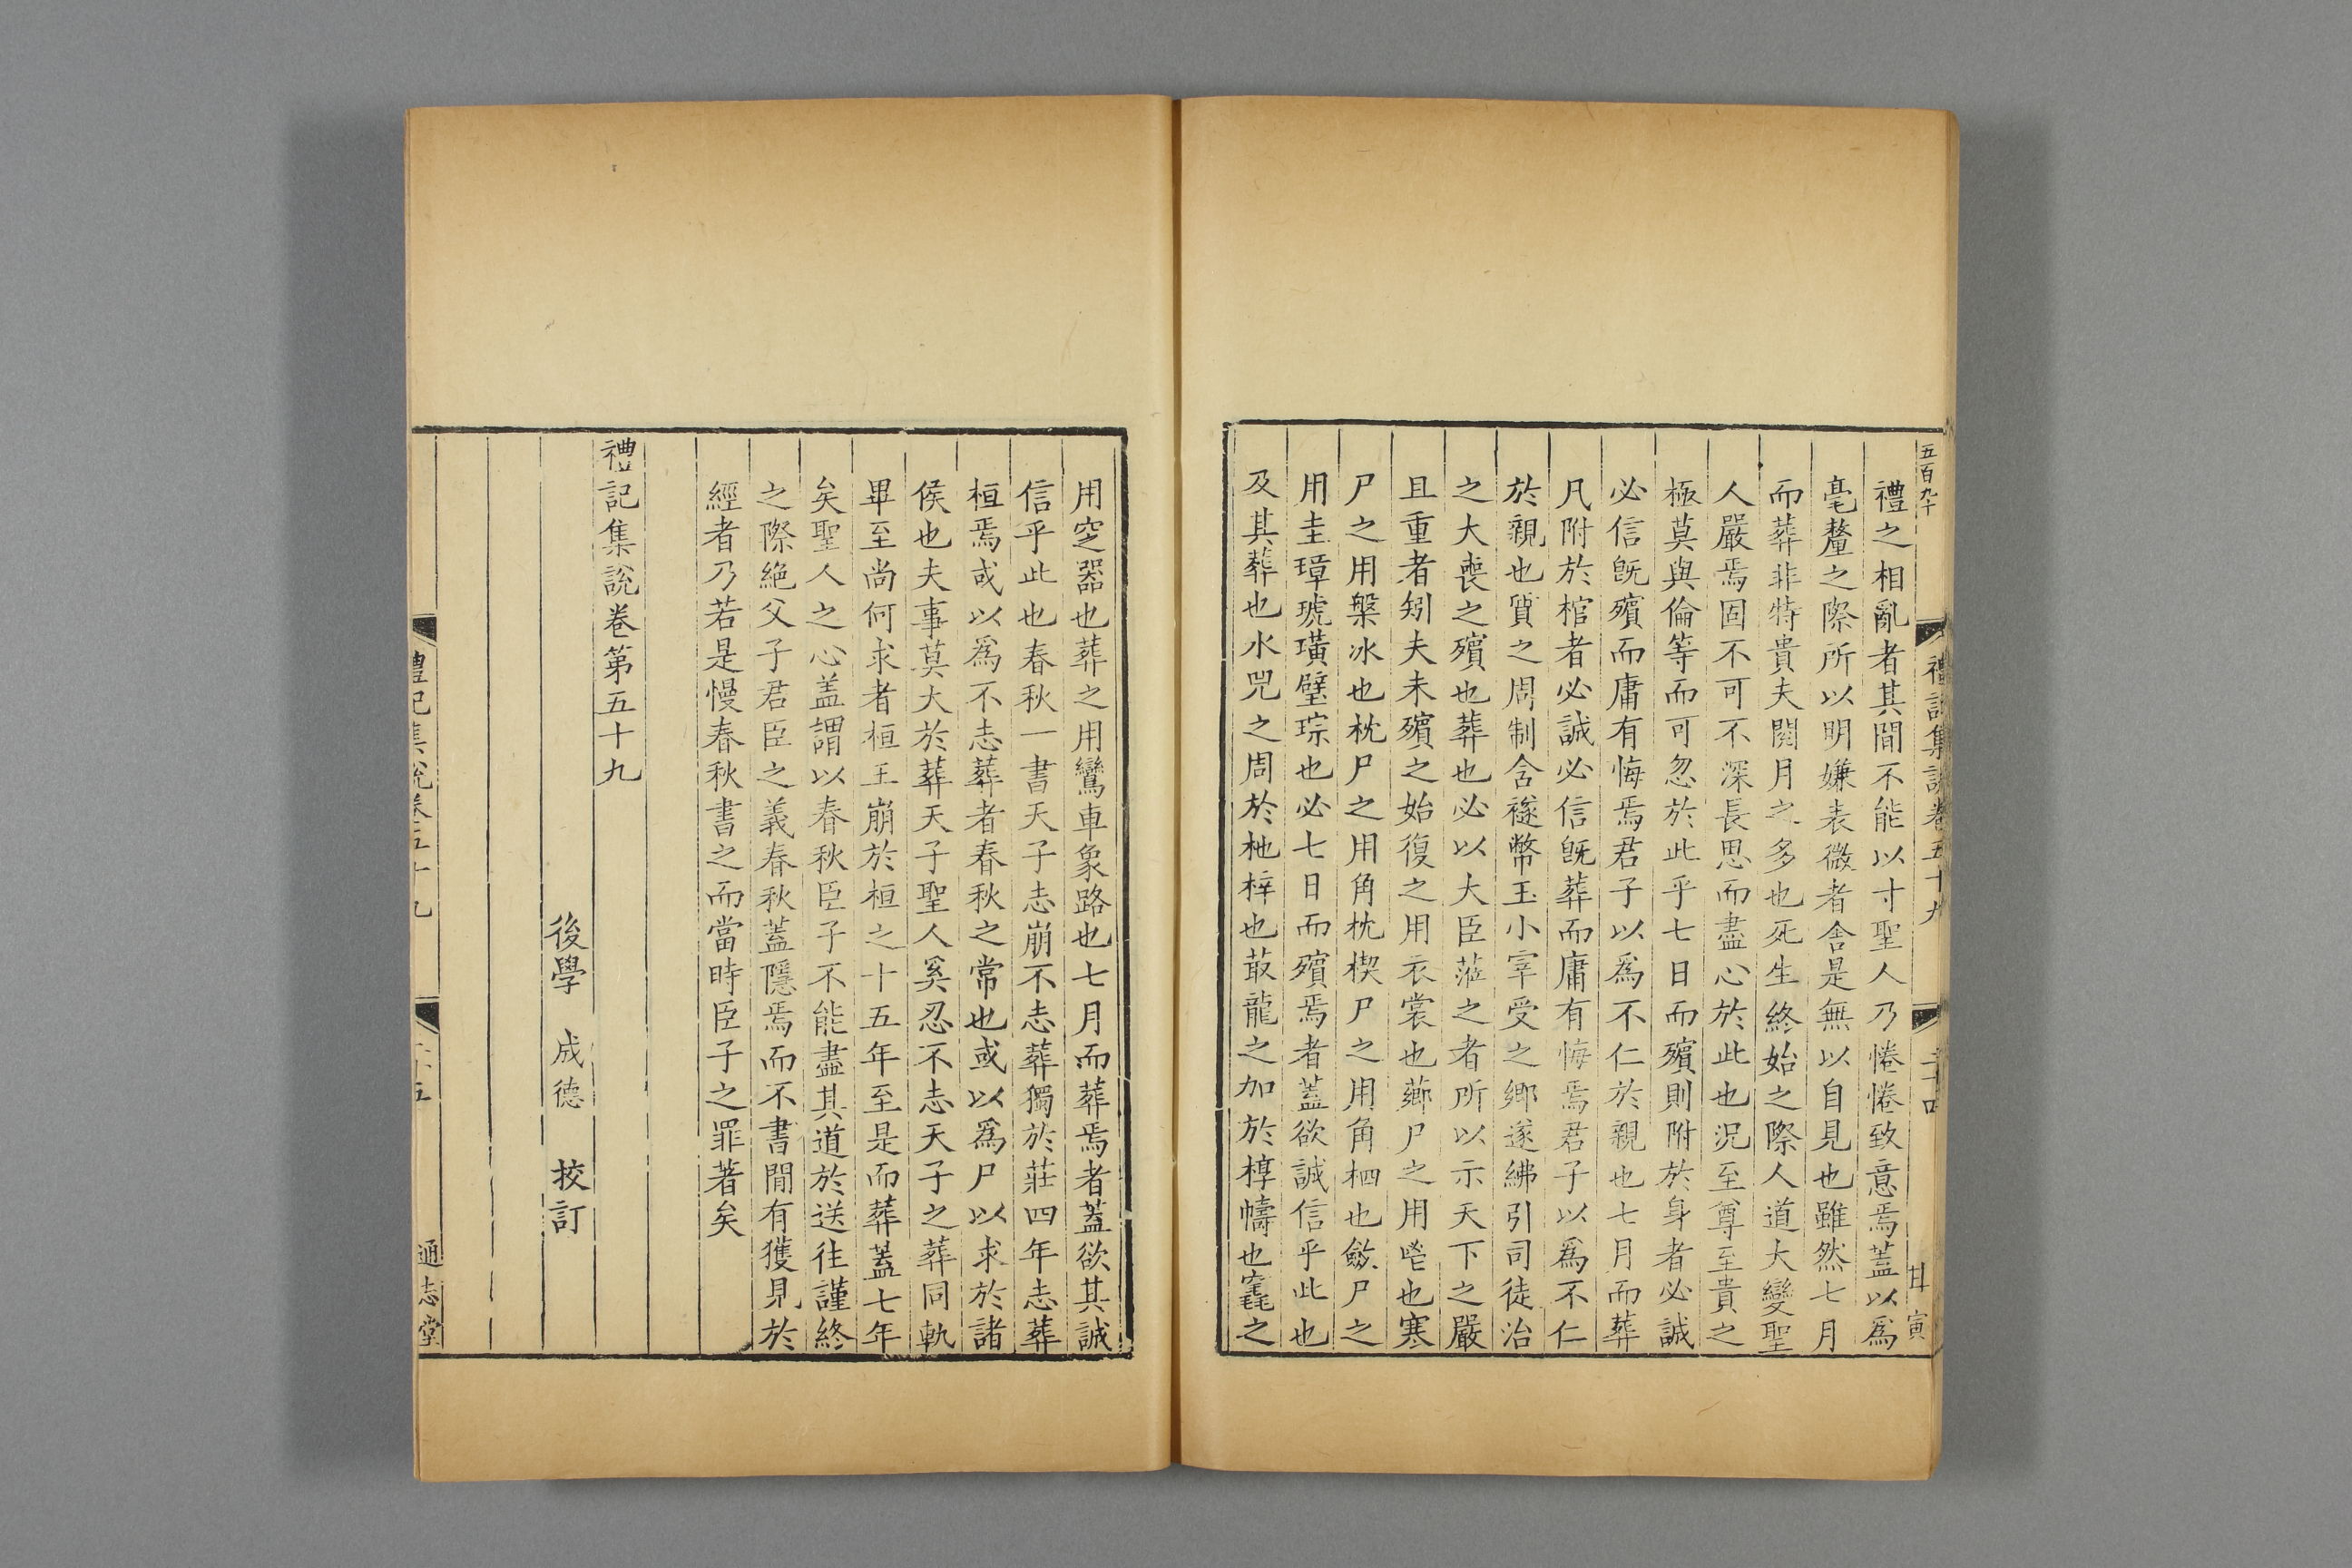 五百九十
禮記集說卷五十九
二十四
甘寅
禮之相亂者其間不能以寸聖人乃惓惓致意焉蓋以爲
毫釐之際所以明嫌表微者舍是無以自見也雖然七月
而葬非特貴夫閱月之多也死生終始之際人道大變聖
人嚴焉固不可不深長思而盡心於此也況至尊至貴之
極莫與倫等而可忽於此乎七日而殯則附於身者必誠
必信旣殯而庸有悔焉君子以爲不仁於親也七月而葬
凡附於棺者必誠必信旣葬而庸有悔焉君子以爲不仁
於親也質之周制含襚幣玉小宰受之鄉遂紼引司徒治
之大喪之殯也葬也必以大臣蒞之者所以示天下之嚴
且重者矧夫未殯之始復之用衣裳也薌尸之用鬯也寒
尸之用槃冰也枕尸之用角枕楔尸之用角柶也斂尸之
用圭璋琥璜璧琮也必七日而殯焉者蓋欲誠信乎此也
及其葬也水兕之周於杝梓也菆龍之加於椁幬也竁之
用窆器也葬之用鸞車象路也七月而葬焉者蓋欲其誠
信乎此也春秋一書天子志崩不志葬獨於莊四年志葬
桓焉或以爲不志葬者春秋之常也或以爲尸以求於諸
侯也夫事莫大於葬天子聖人奚忍不志天子之葬同軌
畢至尚何求者桓王崩於桓之十五年至是而葬蓋七年
矣聖人之心盖謂以春秋臣子不能盡其道於送往謹終
之際絶父子君臣之義春秋蓋隱焉而不書間有獲見於
經者乃若是慢春秋書之而當時臣子之罪著矣
禮記集說卷第五十九
後學 成德 挍訂
禮記集說卷五十九
通志堂